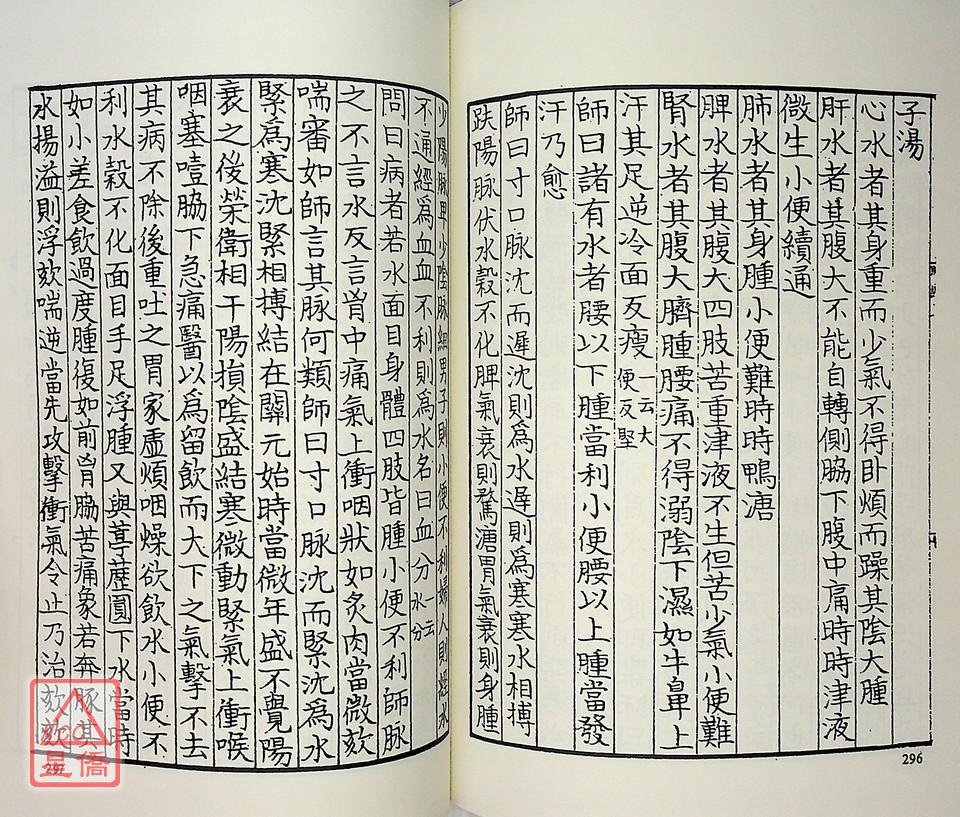 子湯
心水者其身重而少氣不得卧煩而躁其陰大腫
肝水者其腹大不能自轉側脇下腹中痛時時津液
微生小便續通
肺水者其身腫小便難時時鴨溏
脾水者其腹大四肢苦重津液不生但苦少氣小便難
腎水者其腹大臍腫腰痛不得溺陰下濕如牛鼻上
汗其足逆冷面反瘦一云大便反堅
師曰諸有水者腰以下腫當利小便腰以上腫當發
汗乃愈
師曰寸口脉沈而遲沈則為水遲則為寒寒水相搏
趺陽脉伏水穀不化脾氣衰則鶩溏胃氣衰則身腫
296
少陽脉卑少陰脉細男子則小便不利婦人則經水
不通經為血血不利則為水名曰血分一云水分
問曰病者若水面目身體四肢皆腫小便不利師脉
之不言水反言胷中痛氣上衝咽狀如炙肉當微欬
喘審如師言其脉何類師曰寸口脉沈而緊沈為水
緊為寒沈緊相搏結在關元始時當微年盛不覺陽
衰之後榮衛相干陽損陰盛結寒微動緊氣上衝喉
咽塞噎脇下急痛醫以為留飲而大下之氣擊不去
其病不除後重吐之胃家虛煩咽燥欲飲水小便不
利水穀不化面目手足浮腫又與葶藶圓下水當時
如小差食飲過度腫復如前胷脇苦痛象若奔豚其
水揚溢則浮欬喘逆當先攻擊衝氣令止乃治欬欬
297
星僑